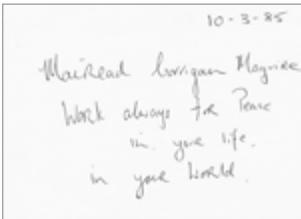 10-3-85
Mairead Corrigan Maguire
Work always for Peace
in your life.
in your World.